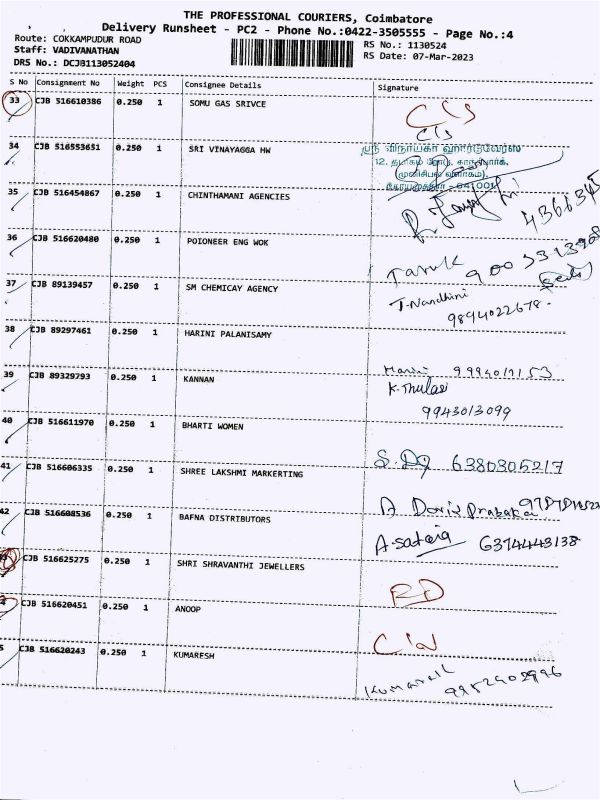 THE PROFESSIONAL COURIERS, Coimbatore
Delivery Runsheet - PC2 - Phone No.:0422-3505555 - Page No.:4
Route: COKKAMPUDUR ROAD
Staff: VADIVANATHAN
DRS No.: DCJB113052404
RS No.: 1130524
RS Date: 07-Mar-2023
S No Consignment No Weight PCS Consignee Details Signature
33 CJB 516610386 0.250 1 SOMU GAS SRIVCE C/S
C/S
34 CJB 516553651 0.250 1 SRI VINAYAGGA HW
ஸ்ரீ விநாயகா ஹார்டுவேர்ஸ்
35 CJB 516454867 0.250 1 CHINTHAMANI AGENCIES 4366345
36 CJB 516620480 0.250 1 POIONEER ENG WOK
37 CJB 89139457 0.250 1 SM CHEMICAY AGENCY T-Nandhini
9894022678.
38 CJB 89297461 0.250 1 HARINI PALANISAMY Harini
39 CJB 89329793 0.250 1 KANNAN K.Thulasi
9943013099
40 CJB 516611970 0.250 1 BHARTI WOMEN 6380305217
41 CJB 516606335 0.250 1 SHREE LAKSHMI MARKERTING
42 CJB 516608536 0.250 1 BAFNA DISTRIBUTORS 6374443138
CJB 516625275 0.250 1 SHRI SHRAVANTHI JEWELLERS RD
CJB 516620451 0.250 1 ANOOP
5 CJB 516620243 0.250 1 KUMARESH